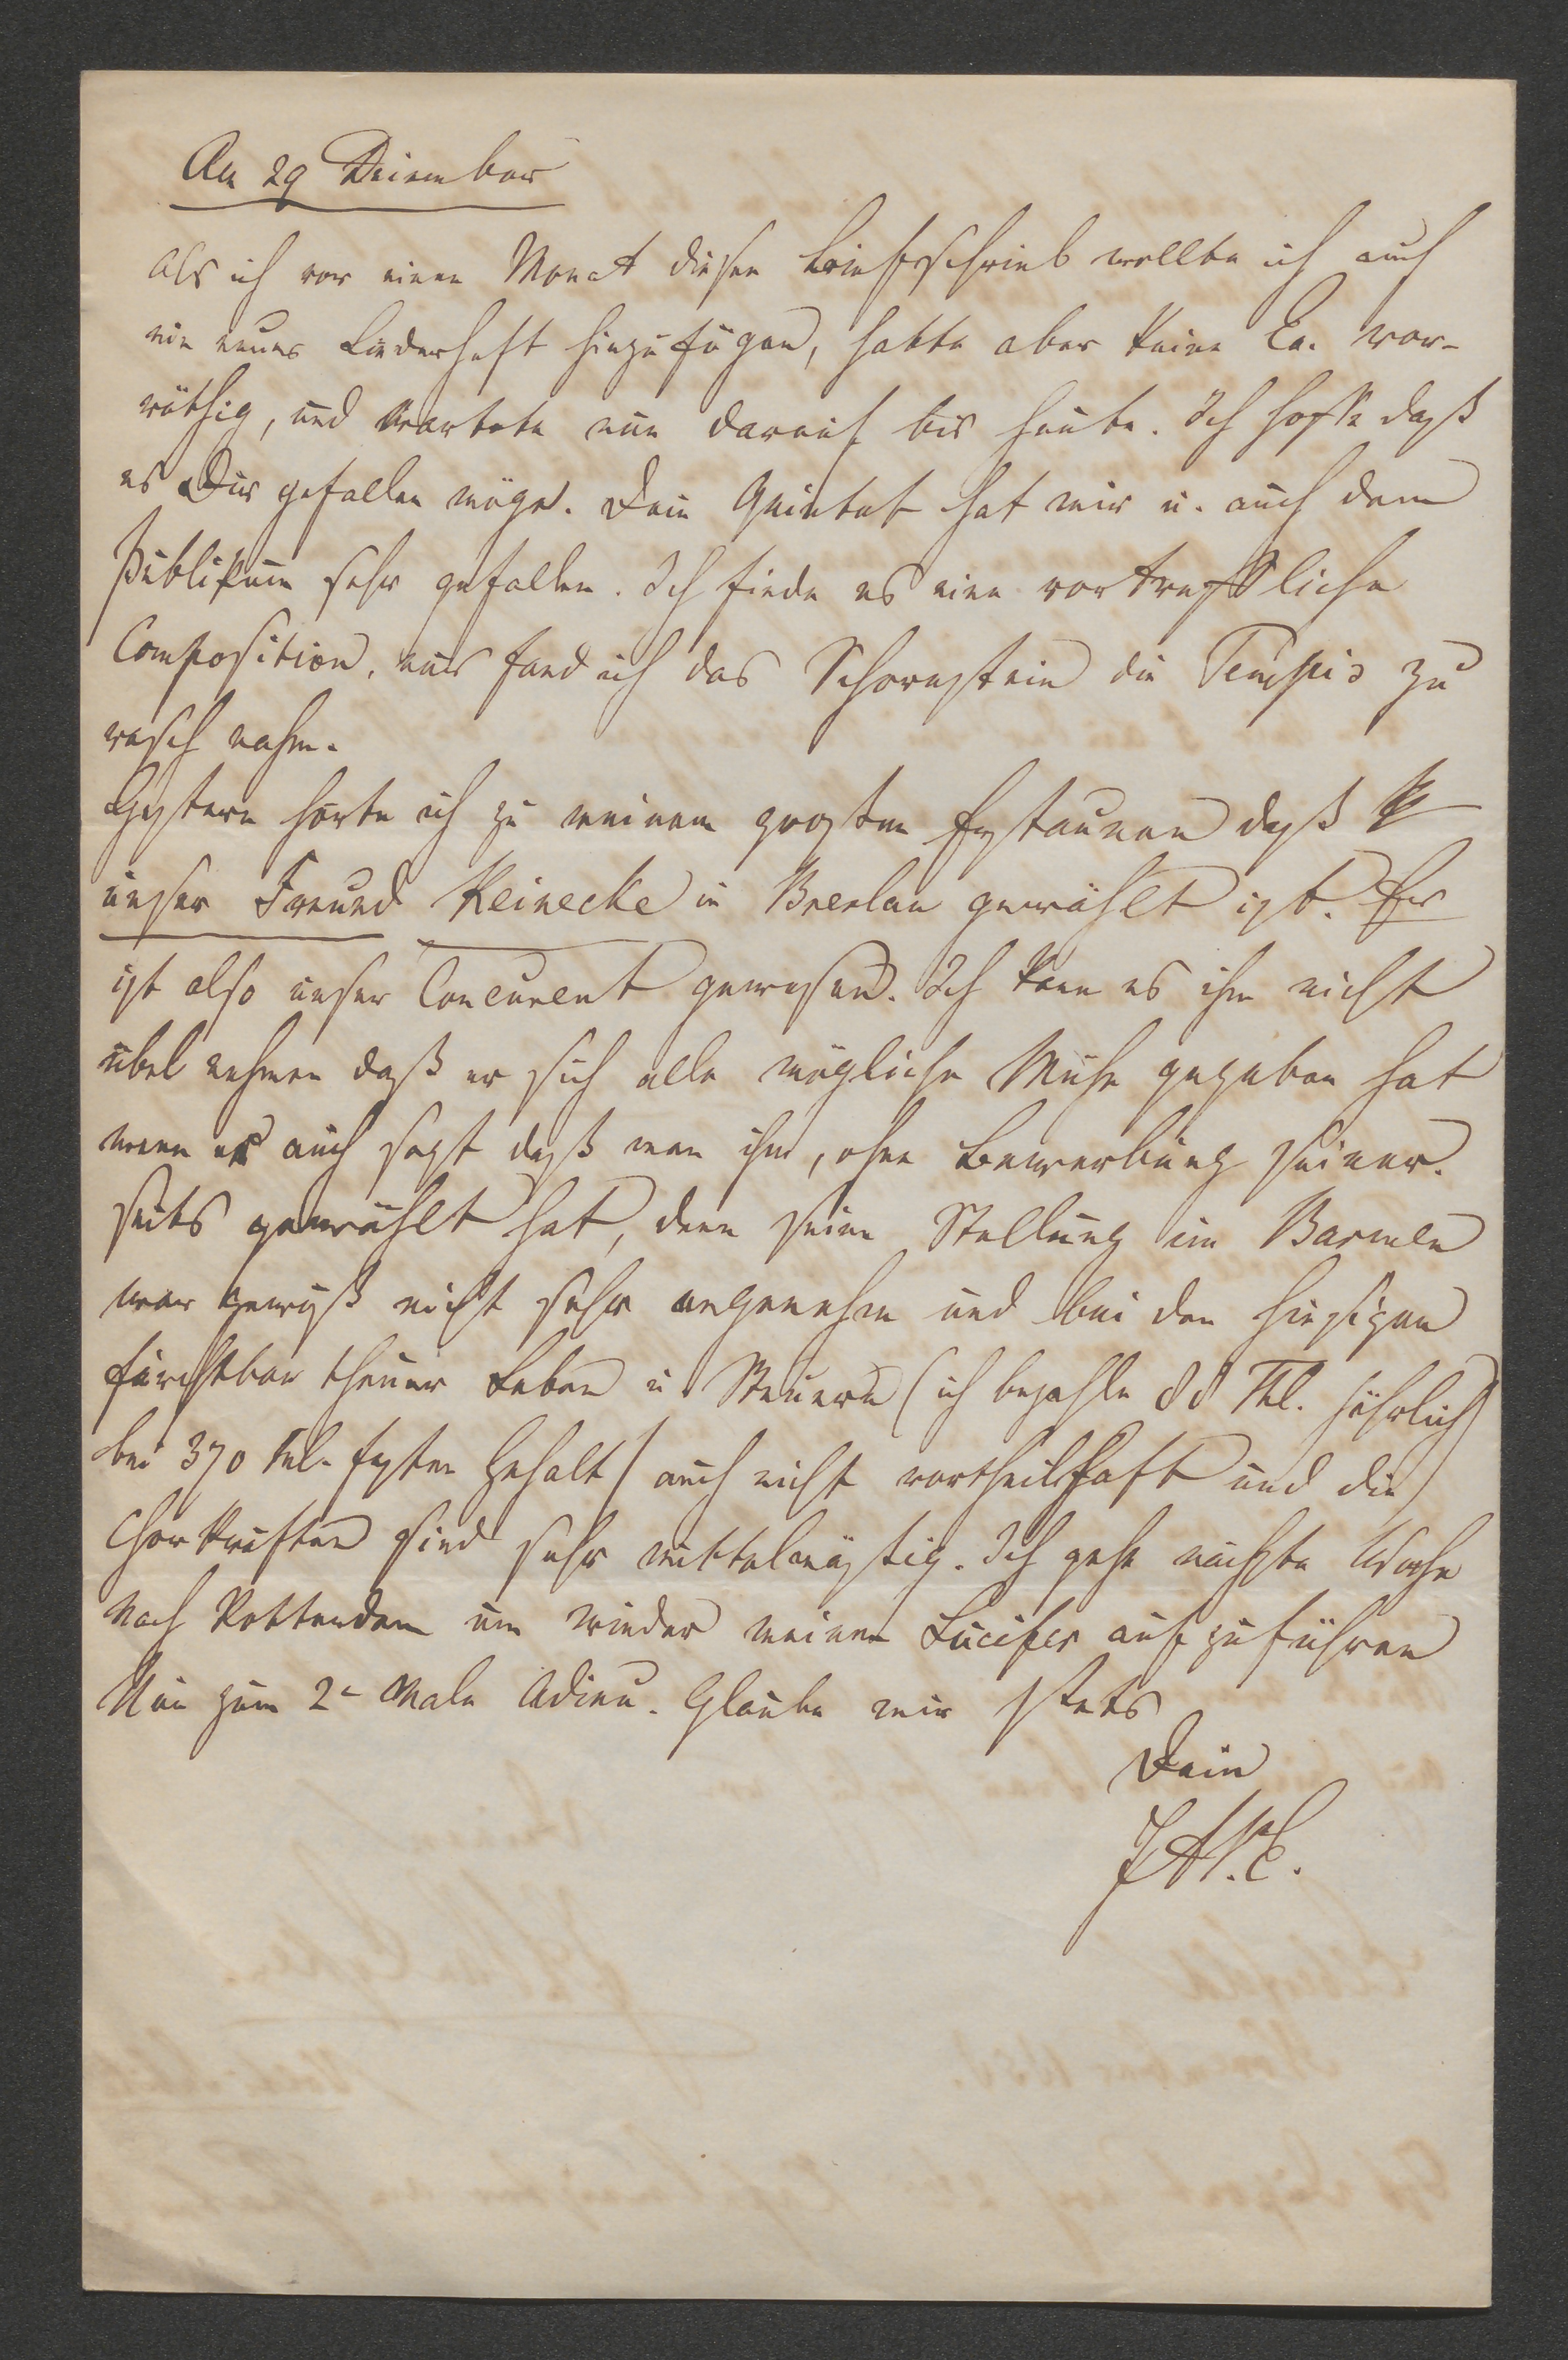 Am 29 Dezember
Als ich vor einen Monat diesen Brief schrieb wollte ich auch
ein neues Liederheft hinzufügen, hatte aber keine Ex. vor-
räthig, und wartete nun darauf bis heute. Ich hoffe daß
es Dir gefallen möge. Dein Quintet hat mir u. auch dem
Publikum sehr gefallen. Ich finde es eine vortreffliche
Composition, nur fand ich das Schornstein die Tempis zu
rasch nahm.
Gestern hörte ich zu meinem grosten Erstaunen daß
unser Freund Reinecke in Breslau gewählt ist. Er
ist also unser Concurent gewesen. Ich kann es ihm nicht
übel nehmen daß er sich alle mögliche Mühe gegeben hat
wenn er auch sagt daß man ihn, ohne Bewerbung seiner-
seits gewählt hat, denn seine Stellung im Barmen
war gewiß nicht sehr angenehm und bei den hiesigen
furchtbar theuer Leben u. Steuern (ich bezahle 88 Thl. jährlich
bei 370 Thl. festen Gehalt) auch nicht vortheilhaft und die
Chorkräften sind sehr mittelmäßig. Ich gehe nächste Woche
nach Rotterdam um wieder meinen Lucifer aufzuführen
Nun zum 2- Male Adieu. Glaube mir stets
Dein
J A v. E.